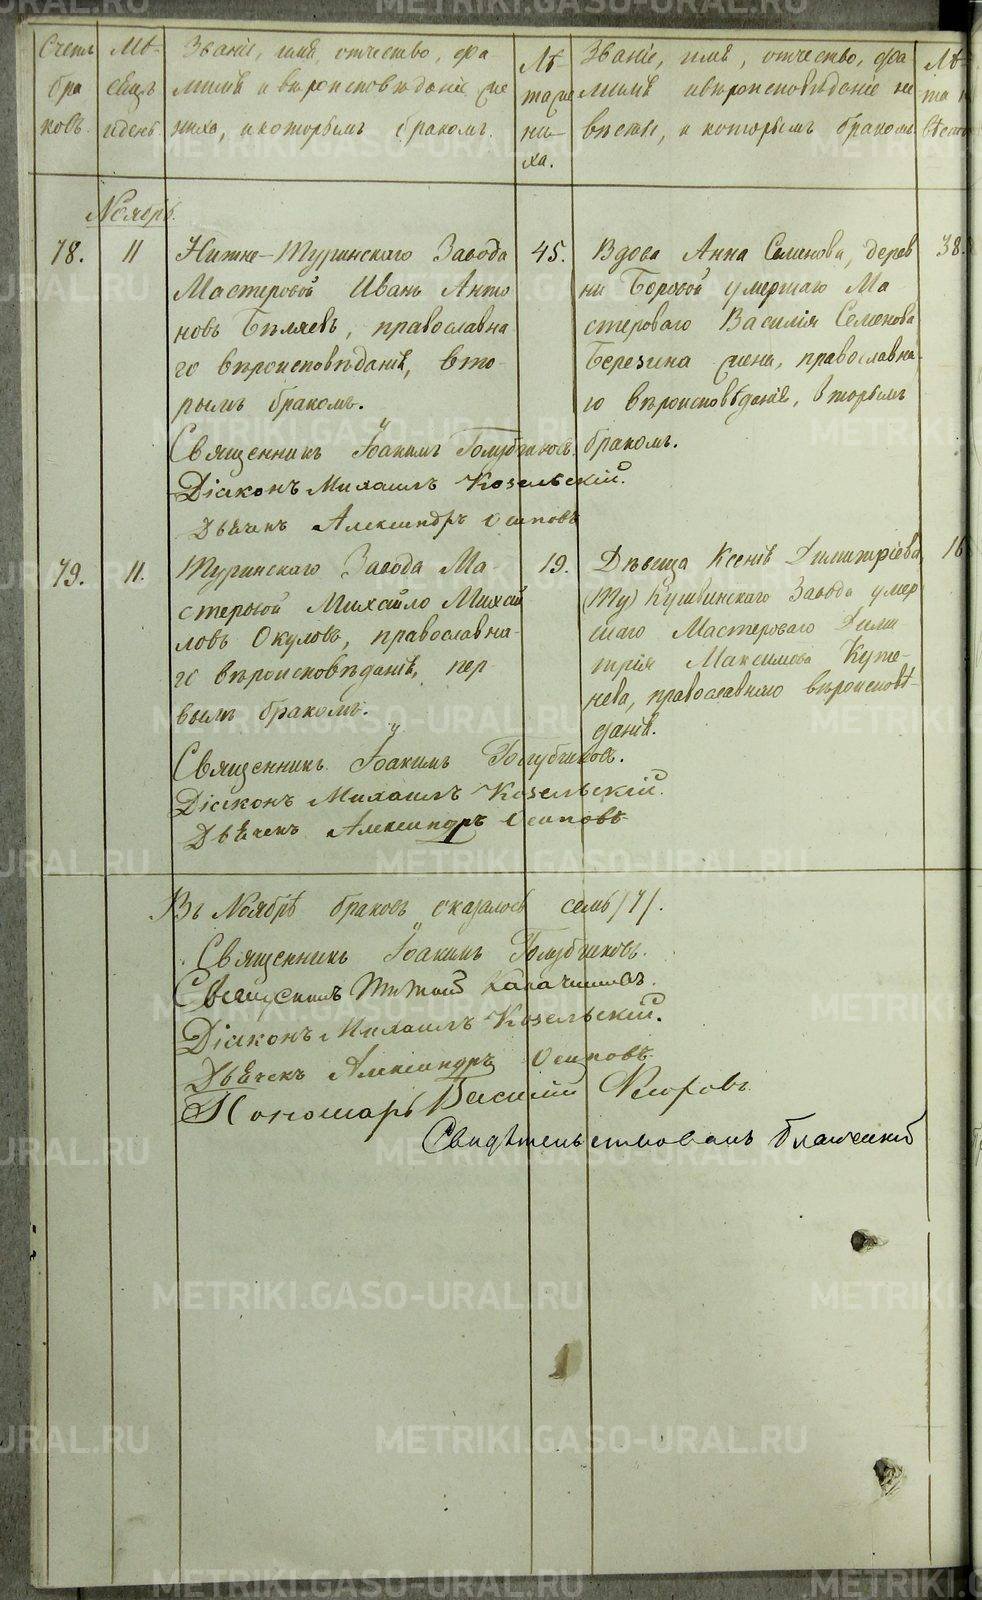 Счетъ бра ковъ.
Мѣ- сяцъ и день
Званіе, имя, отчество, фа-
милія и вѣроисповѣданіе же
ниха, и которымъ бракомъ.
Лѣ-
та же
ни-
ха.
Званіе, имя, отчество, фа
милія и вѣроисповѣданіе не
вѣсты, и которымъ бракомъ.
Лѣ-
та не
вѣсты
Ноябрь.
78.
11
Нижне-Туринскаго Завода
Мастеровой Иванъ Анто
новъ Бѣляевъ, православна
го вѣроисповѣданія, вто-
рымъ бракомъ.
Священникъ Іоакимъ Голубчиковъ.
Діаконъ Михаилъ Козельскій.
Дьячекъ Александръ Осиповъ
45.
Вдова Анна Семенова, дерев
ни Боровой умершаго Ма
стероваго Василія Семенова
Березина жена, православна
го вѣроисповѣданія, вторымъ
бракомъ.
38.
79.
11.
Туринскаго Завода Ма-
стеровой Михайло Михай
ловъ Окуловъ, православна-
го вѣроисповѣданія, пер
вымъ бракомъ.
Священникъ Іоакимъ Голубчиковъ.
Діаконъ Михаилъ Козельскій.
Дьячекъ Александръ Осиповъ
19.
Дѣвица Ксенія Димитріева,
(Ту) Кушвинскаго Завода умер
шаго Мастероваго Дими
трія Максимова Куте-
нева, православнаго вѣроисповѣ-
данія.
16
Въ Ноябрѣ браковъ оказалось семь /7/.
Священникъ Іоакимъ Голубчиковъ.
Священникъ Калачниковъ.
Діаконъ Михаилъ Козельскій.
Дьячекъ Александръ Осиповъ
Пономарь Василій
Свидѣтельствовалъ благочинный
METRIKI.GASO-URAL.RU